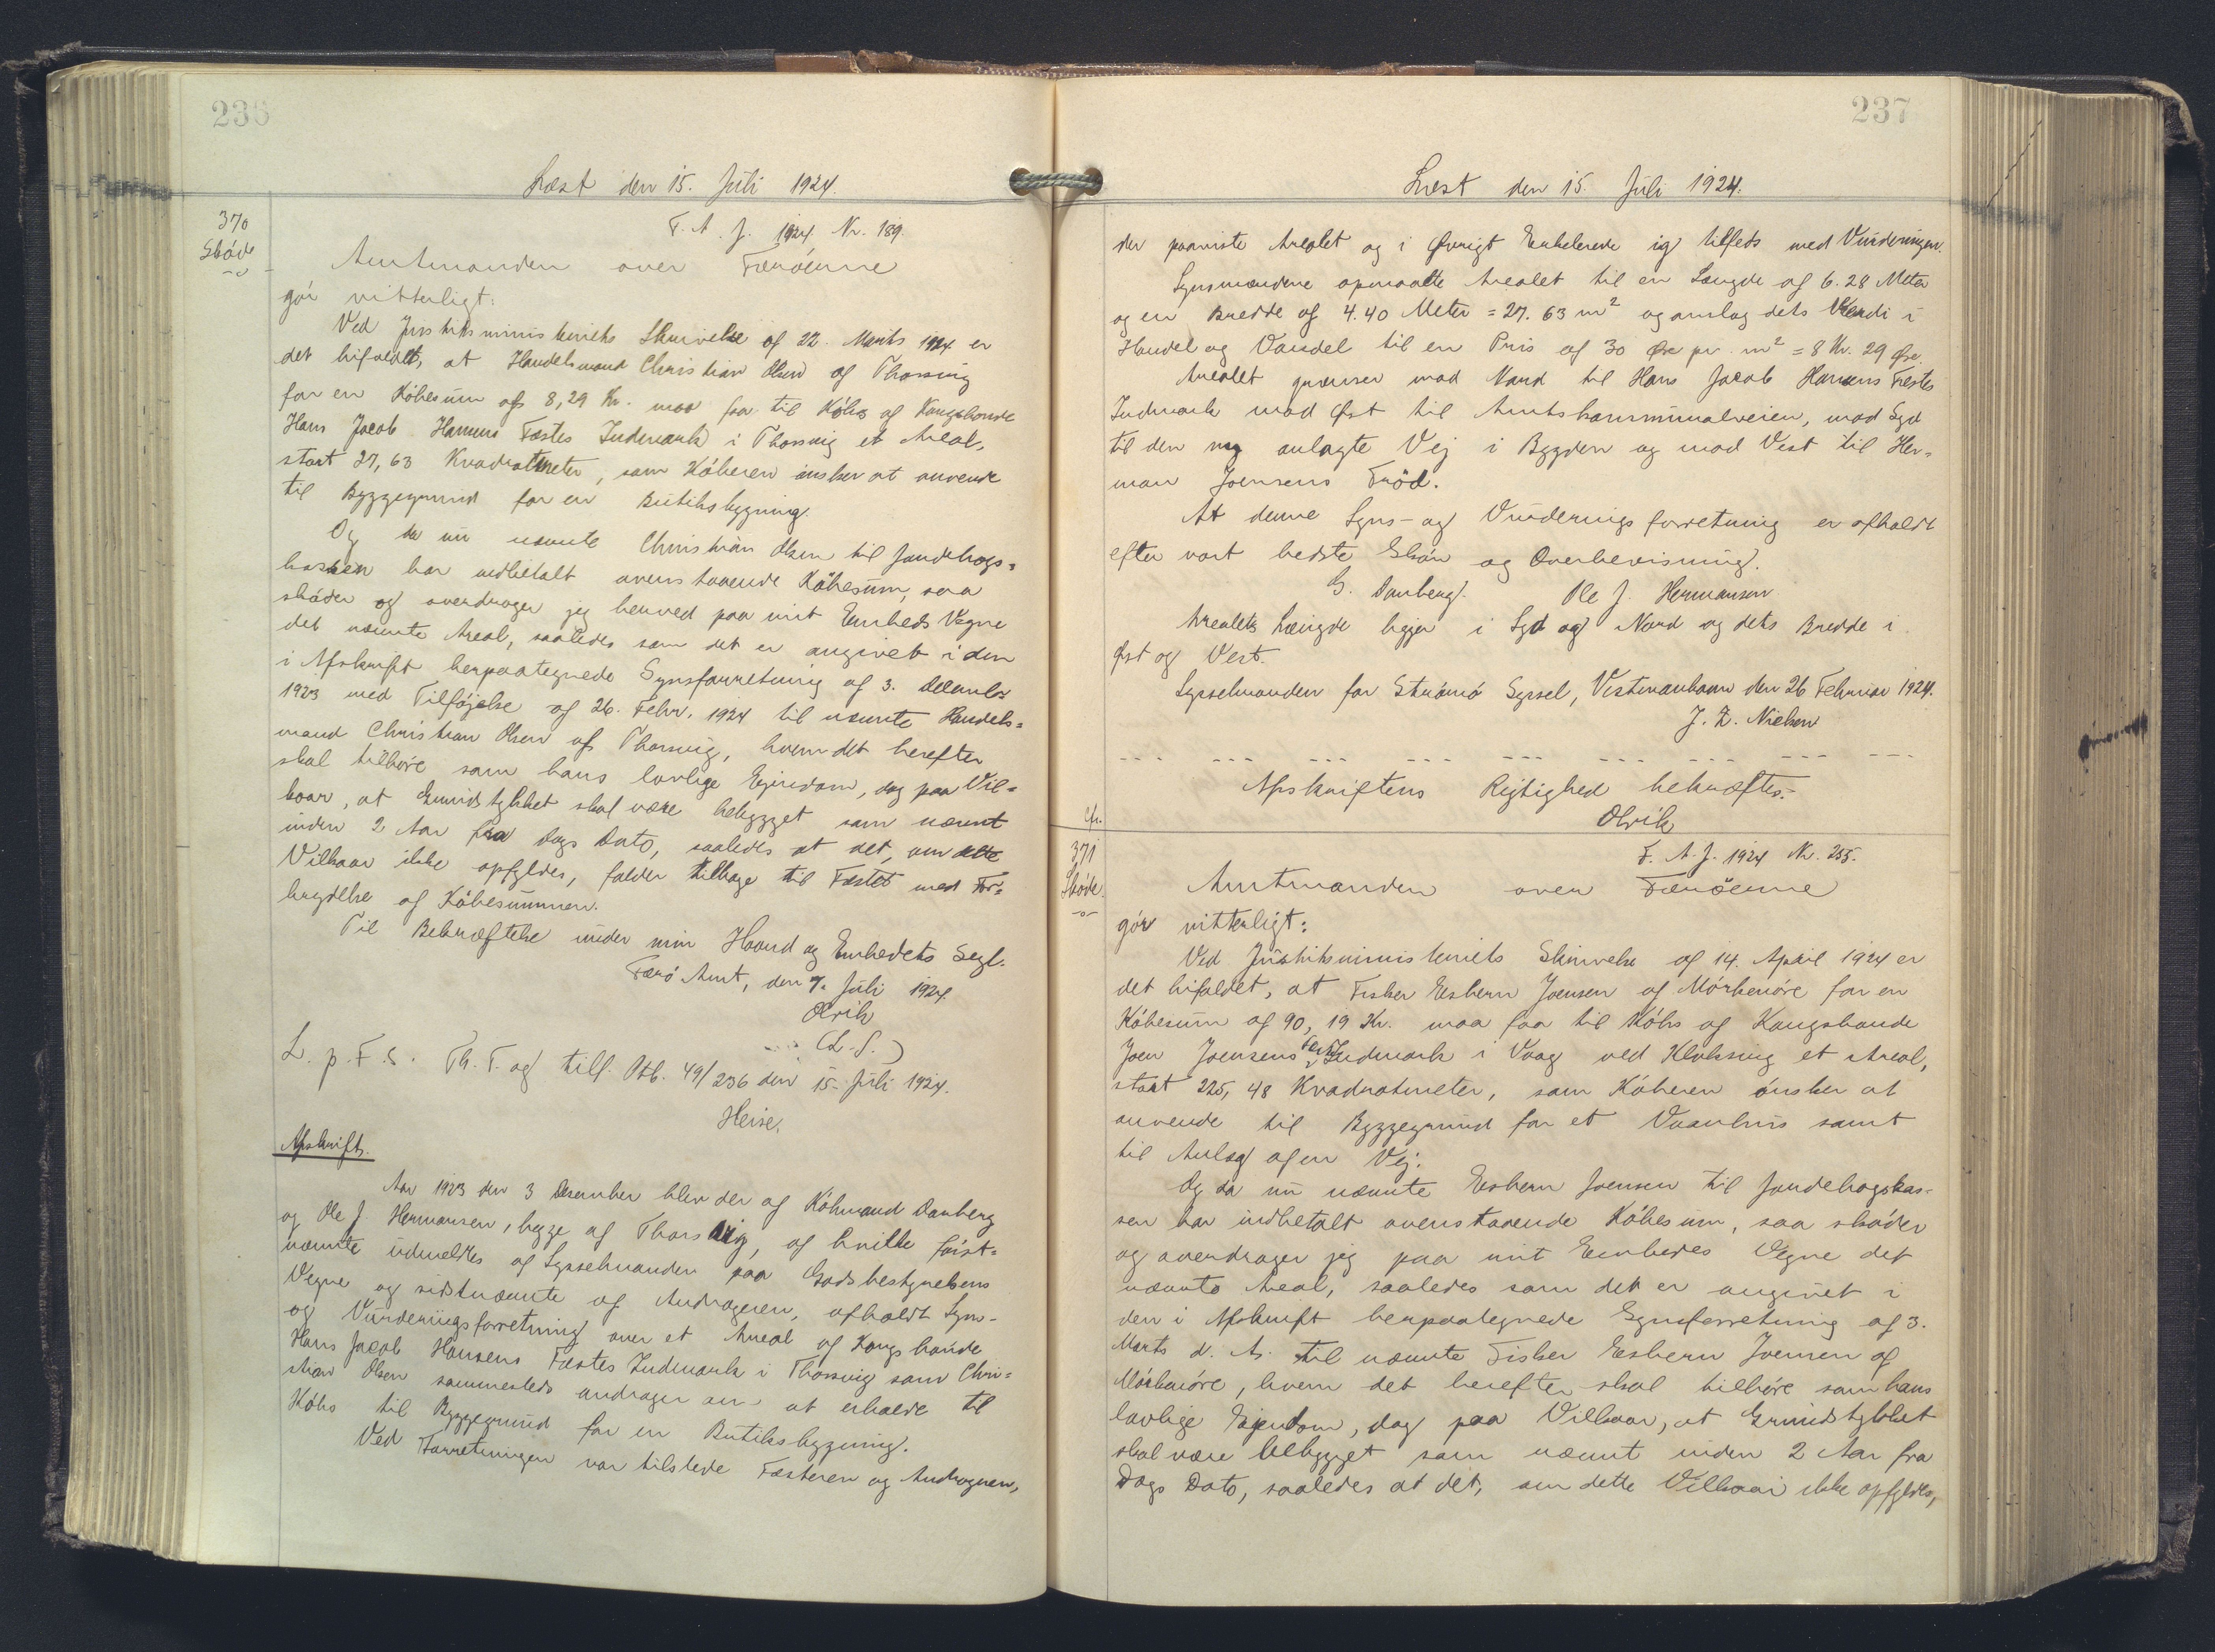 236
Læst den 15. Juli 1924.
370
Skøde
F. A. J. 1924 Nr. 189.
Amtmanden over Færöerne
gör vitterligt:
Ved Justitsministeriets Skrivelse af 22. Marts 1924 er
det bifaldt, at Handelsmand Christian Olsen af Thorsvig
for en Köbesum af 8,29 Kr. maa faa til Köbs af Kongsbonde
Hans Jacob Hansens Fæstes Indmark i Thorsvig et Areal,
stort 27,63 Kvadratmeter, som Köberen önsker at anvende
til Byggegrund for en Butiksbygning.
Og da nu nævnte Christian Olsen til Jordebogs=
kassen har indbetalt ovenstaaende Köbesum, saa
sköder og overdrager jeg herved paa mit Embeds Vegne
det nævnte Areal, saaledes som det er angivet i den
i Afskrift herpaategnede Synsforretning af 3. December
1923 med Tilföjelse af 26. Febr. 1924 til nævnte Handels=
mand Christian Olsen af Thorsvig, hvem det herefter
skal tilhöre som hans lovlige Ejendom, dog paa Vil=
kaar, at Grundstykket skal være bebygget som nævnt
inden 2 Aar fra Dags Dato, saaledes at det, om dette
Vilkaar ikke opfyldes, falder tilbage til Fæstet med For=
brydelse af Köbesummen.
Til Bekræftelse under min Haand og Embedets Segl.
Færö Amt, den 7. Juli 1924.
Olrik
(L. S.)
L. p. F. S. Th. T. og tilf. Ptb. 49/236 den 15. Juli 1924.
Heise.
Afskrift.
Aar 1923 den 3 December blev der af Köbmand Danberg
og Ole J. Hermansen, begge af Thorsvig, af hvilke först=
nævnte udmeldtes af Sysselmanden paa Godsbestyrelsens
Vegne og sidstnævnte af Andrageren, afholdt Syns-
og Vurderingsforretning over et Areal af Kongsbonde
Hans Jacob Hansens Fæstes Indmark i Thorsvig som Chri=
stian Olsen sammesteds andrager om at erholde til
Köbs til Byggegrund for en Butiksbygning.
Ved Forretningen var tilstede Fæsteren og Andrageren,
237
Læst den 15. Juli 1924.
der paaviste Arealet og i Övrigt Erklærede sig tilfreds med Vurderingen.
Synsmændene opmaalte Arealet til en Længde af 6.28 Meter
og en Bredde af 4.40 Meter = 27.63 m² og anslog dets Værdi i
Handel og Vandel til en Pris af 30 Øre pr. m² = 8 Kr. 29 Øre.
Arealet grænser mod Nord til Hans Jacob Hansens Fæstes
Indmark mod Øst til Amtskommunalveien, mod Syd
til den ny anlagte Vej i Bygden og mod Vest til Her=
man Joensens Tröd.
At denne Syns- og Vurderingsforretning er afholdt
efter vort bedste Skön og Overbevisning.
G. Danberg. Ole J. Hermansen
Arealets Længde ligger i Syd og Nord og dets Bredde i
Øst og Vest.
Sysselmanden for Strömö Syssel, Vestmanhavn den 26 Februar 1924.
J. Z. Nielsen
Afskriftens Rigtighed bekræftes.
Olrik
371
Skøde
F. A. J. 1924 Nr. 255.
Amtmanden over Færöerne
gör vitterligt:
Ved Justitsministeriets Skrivelse af 14. April 1924 er
det bifaldet, at Fisker Esbern Joensen af Mörkenöre for en
Köbesum af 90,19 Kr. maa faa til Köbs af Kongsbonde
Joen Joensens Fæstes Indmark i Vaag ved Klaksvig et Areal,
stort 225,48 Kvadratmeter, som Köberen önsker at
anvende til Byggegrund for et Vaanhus samt
til Anlæg af en Vej.
Og da nu nævnte Esbern Joensen til Jordebogskas-
sen har indbetalt ovenstaaende Köbesum, saa sköder
og overdrager jeg paa mit Embedes Vegne det
nævnte Areal, saaledes som det er angivet i
den i Afskrift herpaategnede Synsforretning af 3.
Marts d. A. til nævnte Fisker Esbern Joensen af
Mörkenöre, hvem det herefter skal tilhöre som hans
lovlige Ejendom, dog paa Vilkaar, at Grundstykket
skal være bebygget som nævnt inden 2 Aar fra
Dags Dato, saaledes at det, om dette Vilkaar ikke opfyldes,